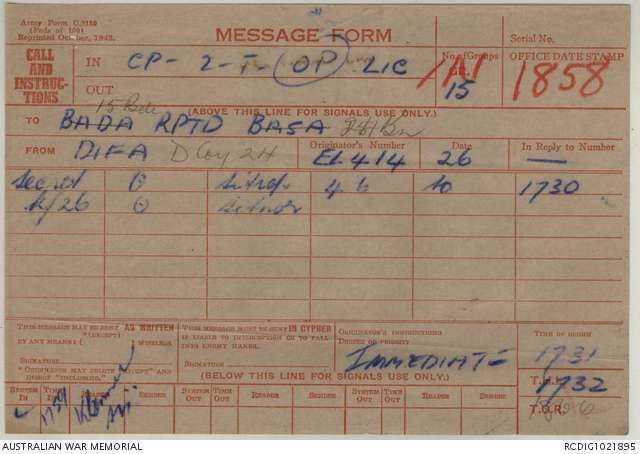 Army Form C.2128
(Pads of 100)
Reprinted October, 1942.
MESSAGE FORM
Serial No.
CALL AND INSTRUC-TIONS
IN CP- 2- T- OP LIC
No. of Groups
GR.
15
OFFICE DATE STAMP
1858
OUT
(ABOVE THIS LINE FOR SIGNALS USE ONLY.)
15 Bde
TO BADA RPTD BASA
FROM DIFA D Coy 24
Originator's Number
EL414
Date
26
In Reply to Number
—
secret sitrep 46 to 1730
K/26
THIS MESSAGE MAY BE SENT AS WRITTEN
(EXCEPT)
BY ANY MEANS WIRELESS
SIGNATURE
THIS MESSAGE MUST BE SENT IN CYPHER
IF LIABLE TO INTERCEPTION OR TO FALL INTO ENEMY HANDS.
SIGNATURE
ORIGINATOR'S INSTRUCTIONS
DEGREE OF PRIORITY
IMMEDIATE
TIME OF ORIGIN
1731
* ORIGINATOR MAY DELETE "EXCEPT" AND INSERT "INCLUDING."
(BELOW THIS LINE FOR SIGNALS USE ONLY.)
T.H.I.
1732
SYSTEM IN TIME IN READER SENDER SYSTEM OUT TIME OUT READER SENDER SYSTEM OUT TIME OUT READER SENDER
T.O.R.
AUSTRALIAN WAR MEMORIAL
RCDIG1021895